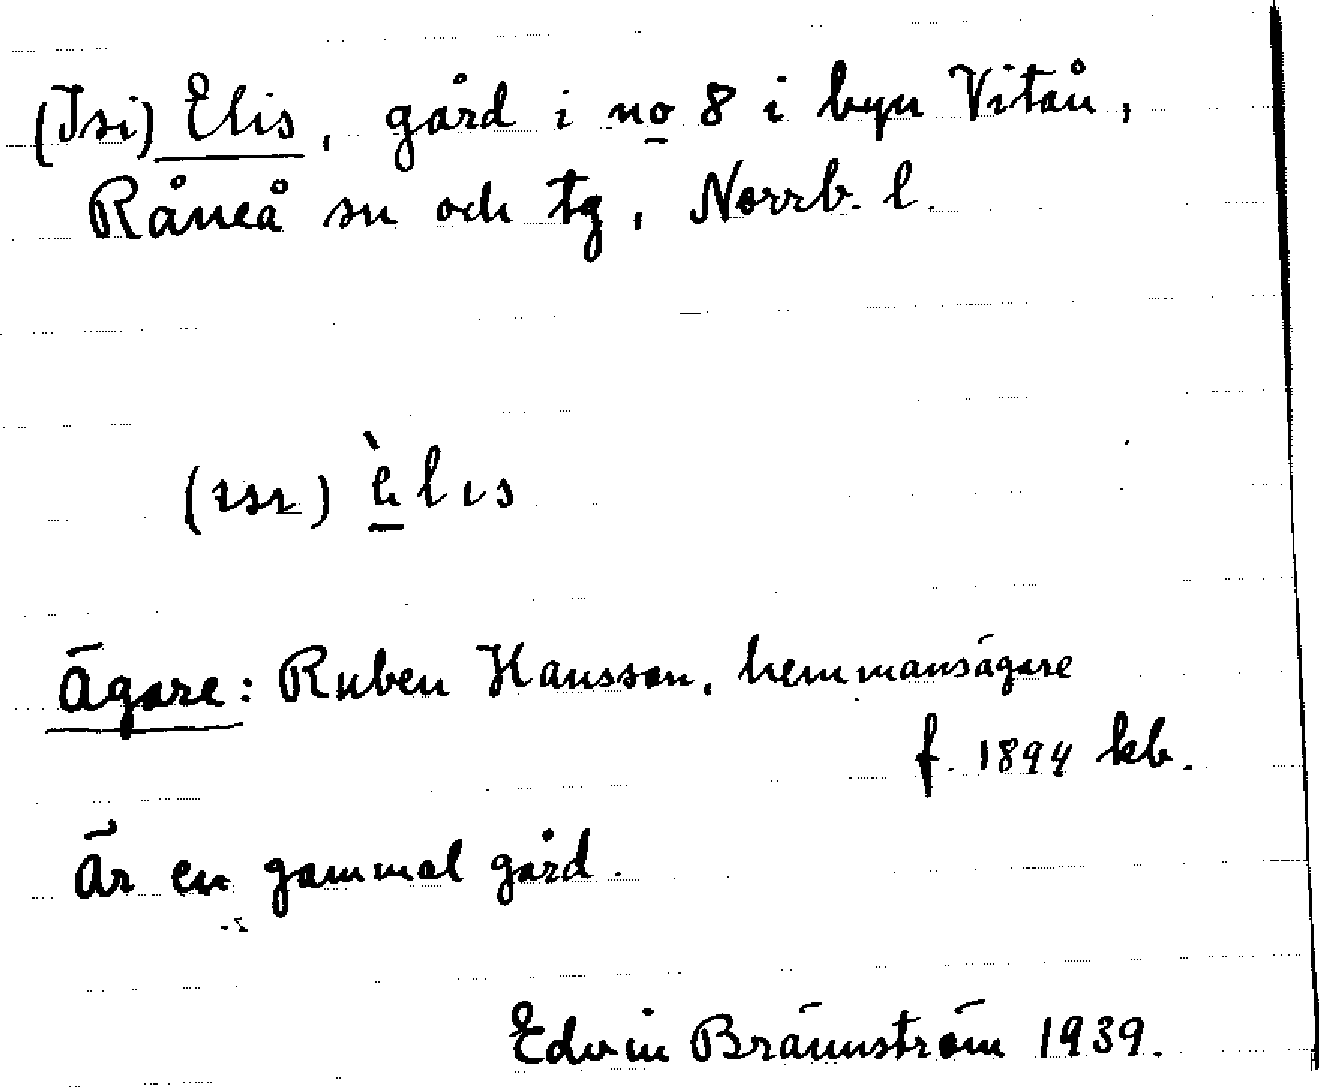 (Isi) Elis, gård i no 8 i byn Vitån,
Råneå sn och tg, Norrb. l.
(ısı) èlıs
Ägare: Ruben Hansson, hemmansägare
f. 1894 kb.
Är en gammal gård.
Edvin Brännström 1939.